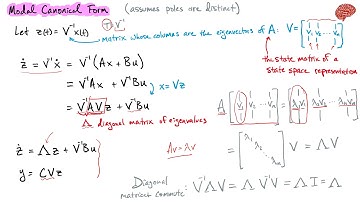 Modal Canonical Form (assumes poles are distinct)
Let z(t) = V⁻¹x(t)
T = V⁻¹
matrix whose columns are the eigenvectors of A: V = [v₁ v₂ ... vₙ]
the state matrix of a state space representation
ż = V⁻¹ẋ = V⁻¹(Ax + Bu)
= V⁻¹Ax + V⁻¹Bu
x = Vz
= V⁻¹AVz + V⁻¹Bu
Λ diagonal matrix of eigenvalues
A[v₁ v₂ ... vₙ] = [λ₁v₁ λ₂v₂ ... λₙvₙ]
Av = λv
= [λ₁ λ₂ ⋱ λₙ] V = ΛV
ż = Λz + V⁻¹Bu
y = CVz
Diagonal matrices commute: V⁻¹ΛV = ΛV⁻¹V = ΛI = Λ